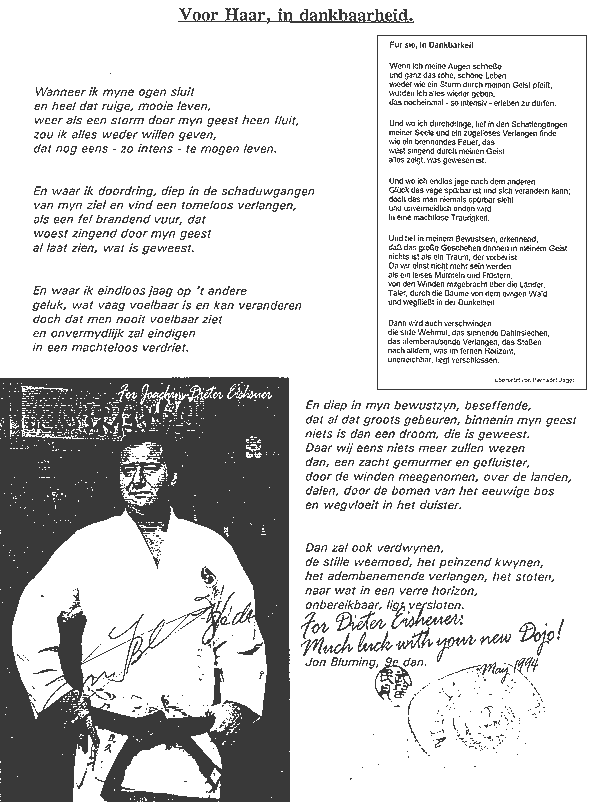 Voor Haar, in dankbaarheid.
Wanneer ik myne ogen sluit
en heel dat ruige, mooie leven,
weer als een storm door myn geest heen fluit,
zou ik alles weder willen geven,
dat nog eens - zo intens - te mogen leven.
En waar ik doordring, diep in de schaduwgangen
van myn ziel en vind een tomeloos verlangen,
als een fel brandend vuur, dat
woest zingend door myn geest
al laat zien, wat is geweest.
En waar ik eindloos jaag op 't andere
geluk, wat vaag voelbaar is en kan veranderen
doch dat men nooit voelbaar ziet
en onvermydlijk zal eindigen
in een machteloos verdriet.
Für sie, in Dankbarkeit
Wenn ich meine Augen schließe
und ganz das rohe, schöne Leben
wieder wie ein Sturm durch meinen Geist pfeift,
würden ich alles wieder geben,
das nocheinmal - so intensiv - erleben zu dürfen.
Und wo ich durchdringe, tief in den Schattengängen
meiner Seele und ein zügelloses Verlangen finde
wie ein brennendes Feuer, das
wüst singend durch meinen Geist
alles zeigt, was gewesen ist.
Und wo ich endlos jage nach dem anderen
Glück das vage spürbar ist und sich verändern kann;
doch das man niemals spürbar sieht
und unvermeidlich enden wird
in eine machtlose Traurigkeit.
Und tief in meinem Bewustsein, erkennend,
daß das große Geschehen drinnen in meinem Geist
nichts ist als ein Traum, der vorbei ist
Da wir einst nicht mehr sein werden
als ein leises Murmeln und Flüstern,
von den Winden mitgebracht über die Länder,
Täler, durch die Bäume von dem ewigen Wald
und wegfließt in der Dunkelheit
Dann wird auch verschwinden
die stille Wehmut, das sinnende Dahinsiechen,
das atemberaubende Verlangen, das Stoßen
nach alldem, was im fernen Horizont,
unerreichbar, liegt verschlossen.
For Joachim-Dieter Eisheuer
En diep in myn bewustzyn, beseffende,
dat al dat groots gebeuren, binnenin myn geest
niets is dan een droom, die is geweest.
Daar wij eens niets meer zullen wezen
dan, een zacht gemurmer en gefluister,
door de winden meegenomen, over de landen,
dalen, door de bomen van het eeuwige bos
en wegvloeit in het duister.
Dan zal ook verdwynen,
de stille weemoed, het peinzend kwynen,
het adembenemende verlangen, het stoten,
naar wat in een verre horizon,
onbereikbaar, ligt versloten.
For Dieter Eisheuer:
Much luck with your new Dojo!
Jon Bluming, 9e dan.
May 1994